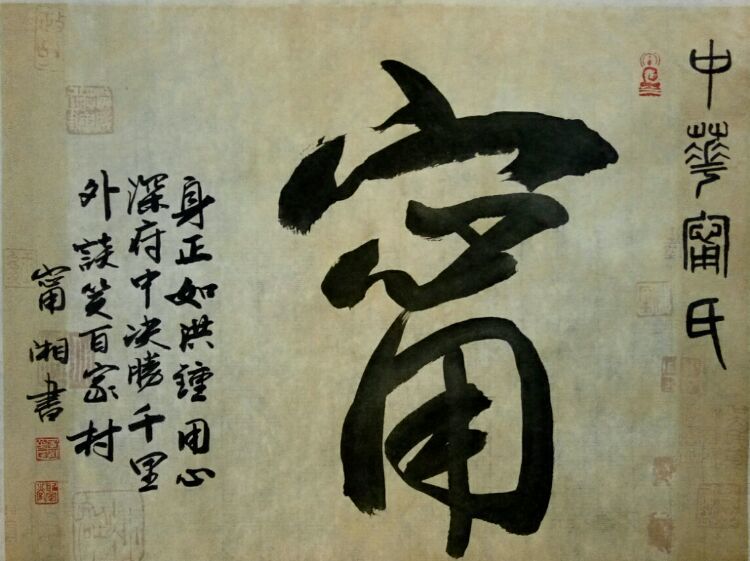 中華甯氏
甯
身正如洪鍾用心
深府中决勝千里
外談笑百家村
甯湘書